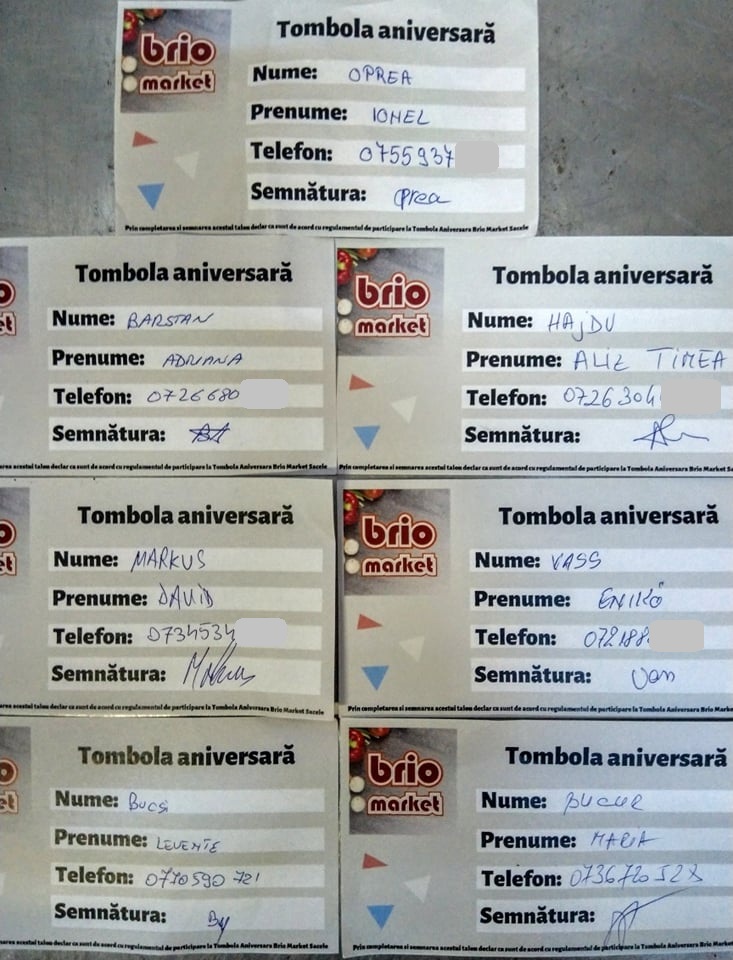 brio
market
Tombola aniversară
Nume: OPREA
Prenume: IONEL
Telefon: 0755937
Semnătura: Oprea
Prin completarea si semnarea acestui talon declar ca sunt de acord cu regulamentul de participare la Tombola Aniversara Brio Market Sacele
Tombola aniversară
Nume: BARSTAN
Prenume: ADRIANA
Telefon: 0726680
Semnătura:
acestui talon declar ca sunt de acord cu regulamentul de participare la Tombola Aniversara Brio Market Sacele
brio
market
Tombola aniversară
Nume: HAjDU
Prenume: ALIZ TIMEA
Telefon: 0726304
Semnătura:
Prin completarea si semnarea acestui talon declar ca sunt de acord cu regulamentul de participare la Tombola Aniversara Brio Market
Tombola aniversară
Nume: MARKUS
Prenume: DAVID
Telefon: 0734534
Semnătura: Markus
acestui talon declar ca sunt de acord cu regulamentul de participare la Tombola Aniversara Brio Market Sacele
brio
market
Tombola aniversară
Nume: VASS
Prenume: ENIKŐ
Telefon: 072188
Semnătura: Vass
Prin completarea si semnarea acestui talon declar ca sunt de acord cu regulamentul de participare la Tombola Aniversara Brio Market
Tombola aniversară
Nume: Bucsi
Prenume: LEVENTE
Telefon: 0770590721
Semnătura:
semnarea acestui talon declar ca sunt de acord cu regulamentul de participare la Tombola Aniversara Brio Market Sacele
brio
market
Tombola aniversară
Nume: BUCUR
Prenume: MARIA
Telefon: 0736720528
Semnătura:
Prin completarea si semnarea acestui talon declar ca sunt de acord cu regulamentul de participare la Tombola Aniversara Brio Market